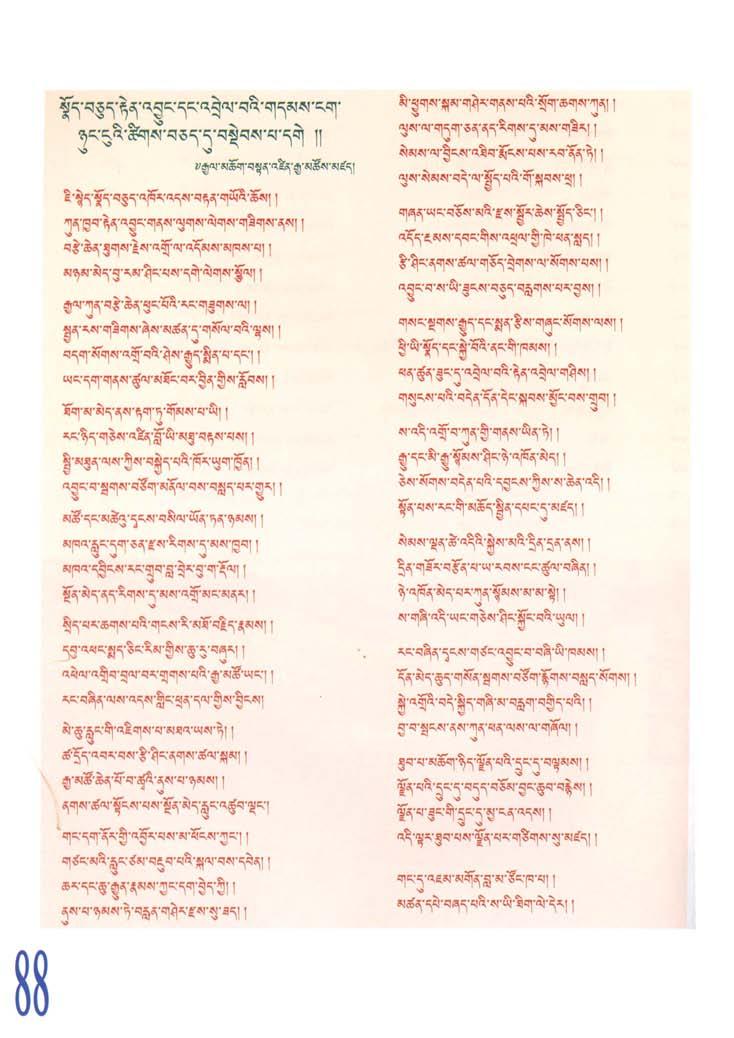 སྣོད་བཅུད་རྟེན་འབྱུང་དང་འབྲེལ་བའི་གདམས་ངག་
ཉུང་ངུའི་ཚིགས་བཅད་དུ་བསྡེབས་པ་དགེ །།
༧རྒྱལ་མཆོག་བསྟན་འཛིན་རྒྱ་མཚོས་མཛད།
ཇི་སྙེད་སྣོད་བཅུད་འཁོར་འདས་བརྟན་གཡོའི་ཆོས། །
ཀུན་ཁྱབ་རྟེན་འབྱུང་གནས་ལུགས་ལེགས་གཟིགས་ནས། །
བརྩེ་ཆེན་ཐུགས་རྗེས་འགྲོ་ལ་འདོམས་མཁས་པ། །
མཉམ་མེད་བུ་རམ་ཤིང་པས་དགེ་ལེགས་སྩོལ། །
རྒྱལ་ཀུན་བརྩེ་ཆེན་ཕུང་པོའི་རང་གཟུགས་ལ། །
སྤྱན་རས་གཟིགས་ཞེས་མཚན་དུ་གསོལ་བའི་ལྷས། །
བདག་སོགས་འགྲོ་བའི་ཤེས་རྒྱུད་སྨིན་པ་དང་། །
ཡང་དག་གནས་ཚུལ་མཐོང་བར་བྱིན་གྱིས་རློབས། །
ཐོག་མ་མེད་ནས་རྟག་ཏུ་གོམས་པ་ཡི། །
རང་ཉིད་གཅེས་འཛིན་བློ་ཡི་མཐུ་བརྟས་པས། །
སྤྱི་མཐུན་ལས་ཀྱིས་བསྐྱེད་པའི་ཁོར་ཡུག་ཁྱོན། །
འབྱུང་བ་སྦགས་བཙོག་མནོལ་བས་བསླད་པར་གྱུར། །
མཚོ་དང་མཚེའུ་དྭངས་བསིལ་ཡོན་ཏན་ཉམས། །
མཁའ་རླུང་དུག་ཅན་རྫས་རིགས་དུ་མས་ཁྱབ། །
མཁའ་དབྱིངས་རང་གྲུབ་བླ་བྲེར་བུ་ག་རྡོལ། །
སྔོན་མེད་ནད་རིགས་དུ་མས་འགྲོ་མང་མནར། །
སྲིད་པར་ཆགས་པའི་གངས་རི་མཐོ་བརྗིད་རྣམས། །
དབུ་འཕང་སྨད་ཅིང་རིམ་གྱིས་ཆུ་རུ་བཞུར། །
འཕེལ་འགྲིབ་བྲལ་བར་གྲགས་པའི་རྒྱ་མཚོ་ཡང་། །
རང་བཞིན་ལས་འདས་གླིང་ཕྲན་དལ་གྱིས་བྱིངས།
མེ་ཆུ་རླུང་གི་འཇིགས་པ་མཐའ་ཡས་ཏེ། །
ཚ་དྲོད་འབར་བས་རྩི་ཤིང་ནགས་ཚལ་སྐམ། །
རྒྱ་མཚོ་ཆེན་པོ་བ་ཚྭའི་ནུས་པ་ཉམས། །
ནགས་ཚལ་སྟོངས་པས་སྔོན་མེད་རླུང་འཚུབ་ལྡང་།
གང་དག་ནོར་གྱི་འབྱོར་པས་མ་ཕོངས་ཀྱང་། །
གཙང་མའི་རླུང་ཙམ་བརྔུབ་པའི་སྐལ་བས་དབེན། །
ཆར་དང་ཆུ་རྒྱུན་རྣམས་ཀྱང་དག་བྱེད་ཀྱི། །
ནུས་པ་ཉམས་ཏེ་བརླན་གཤེར་རྫས་སུ་ཟད། །
མི་ཕྱུགས་སྐམ་གཤེར་གནས་པའི་སྲོག་ཆགས་ཀུན། །
ལུས་ལ་གདུག་ཅན་ནད་རིགས་དུ་མས་གཟིར། །
སེམས་ལ་བྱིངས་འཐིབ་རྨོངས་པས་རབ་ནོན་ཏེ། །
ལུས་སེམས་བདེ་ལ་སྤྱོད་པའི་གོ་སྐབས་ཕྲ། །
གཞན་ཡང་བཅོས་མའི་རྫས་སྦྱོར་ཆེས་སྤྱོད་ཅིང་། །
འདོད་རྔམས་དབང་གིས་འཕྲལ་གྱི་ཁེ་ཕན་སླད། །
རྩི་ཤིང་ནགས་ཚལ་གཅོད་བྲེགས་ལ་སོགས་པས། །
འབྱུང་བ་ས་ཡི་ཟུངས་བཅུད་བརླགས་པར་བྱས། །
གསང་སྔགས་རྒྱུད་དང་སྨན་རྩིས་གཞུང་སོགས་ལས། །
ཕྱི་ཡི་སྣོད་དང་སྐྱེ་བོའི་ནང་གི་ཁམས། །
ཕན་ཚུན་ཟུང་དུ་འབྲེལ་བའི་རྟེན་འབྲེལ་གཤིས། །
གསུངས་པའི་བདེན་དོན་དེང་སྐབས་མྱོང་བས་གྲུབ། །
ས་འདི་འགྲོ་བ་ཀུན་གྱི་གནས་ཡིན་ཏེ། །
རྒྱུ་དང་མི་རྒྱུ་སྙོམས་ཤིང་ཉེ་འཁོན་མེད། །
ཅེས་སོགས་བདེན་པའི་དབྱངས་ཀྱིས་ས་ཆེན་འདི། །
སྟོན་པས་རང་གི་མཆོད་སྦྱིན་དཔང་དུ་མཛད། །
སེམས་ལྡན་ཚེ་འདིའི་སྐྱེས་མའི་དྲིན་དྲན་ནས། །
དྲིན་གཟོར་བརྩོན་པ་ཡ་རབས་ངང་ཚུལ་བཞིན། །
ཉེ་འཁོན་མེད་པར་ཀུན་སྙོམས་མ་མ་སྟེ། །
ས་གཞི་འདི་ཡང་གཅེས་ཤིང་སྐྱོང་བའི་ཡུལ། །
རང་བཞིན་དྭངས་གཙང་འབྱུང་བ་བཞི་ཡི་ཁམས། །
དོན་མེད་ཆུད་གསོན་སྦགས་བཙོག་རྙོགས་བསླད་སོགས། །
སྐྱེ་འགྲོའི་བདེ་སྐྱིད་གཞི་མ་བརླག་བགྱིད་པའི། །
བྱ་བ་སྤངས་ནས་ཀུན་ཕན་ལས་ལ་གཞོལ། །
ཐུབ་པ་མཆོག་ཉིད་ལྗོན་པའི་དྲུང་དུ་བལྟམས། །
ལྗོན་པའི་དྲུང་དུ་བདུད་བཅོམ་བྱང་ཆུབ་བརྙེས། །
ལྗོན་པ་ཟུང་གི་དྲུང་དུ་མྱ་ངན་འདས། །
འདི་ལྟར་ཐུབ་པས་ལྗོན་པར་གཙིགས་སུ་མཛད། །
གང་དུ་འཇམ་མགོན་བླ་མ་ཙོང་ཁ་པ། །
མཚན་དཔེ་བཞད་པའི་ས་ཡི་ཐིག་ལེ་དེར། །
88